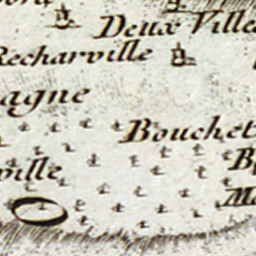 Deux Ville
Recharville
agne
Bouchet
ville